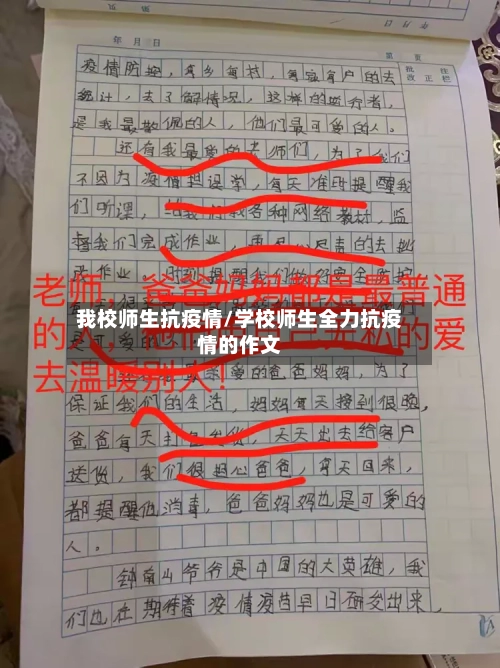 年 月 日
第 页
批 住
改 正 栏
疫情防控，每乡每村，每家每户的去
统计，去了解情况，这样的医疗者，
是我最敬佩的人，他们最可爱的人。
还有我最爱的老师们，为了我们
不因为疫情耽误学，每天准时提醒我
们听课，给我们找各种网络教材，监
督我们完成作业，的去批
改作业，时刻提醒我们
老师，爸爸妈妈都是最普通
的人
我校师生抗疫情/学校师生全力抗疫
情的作文
的爱
去温暖别人！
爱的爸爸妈妈，为了
保证我们的生活，妈妈每天接到很晚，
爸爸每天打包发货，天天出去给客户
送货，我们很担心爸爸，每天回来，
都提醒他消毒，爸爸妈妈也是可爱的
人。
钟南山爷爷是中国的大英雄，我
们也在期待着疫情疫苗早日研发出来，